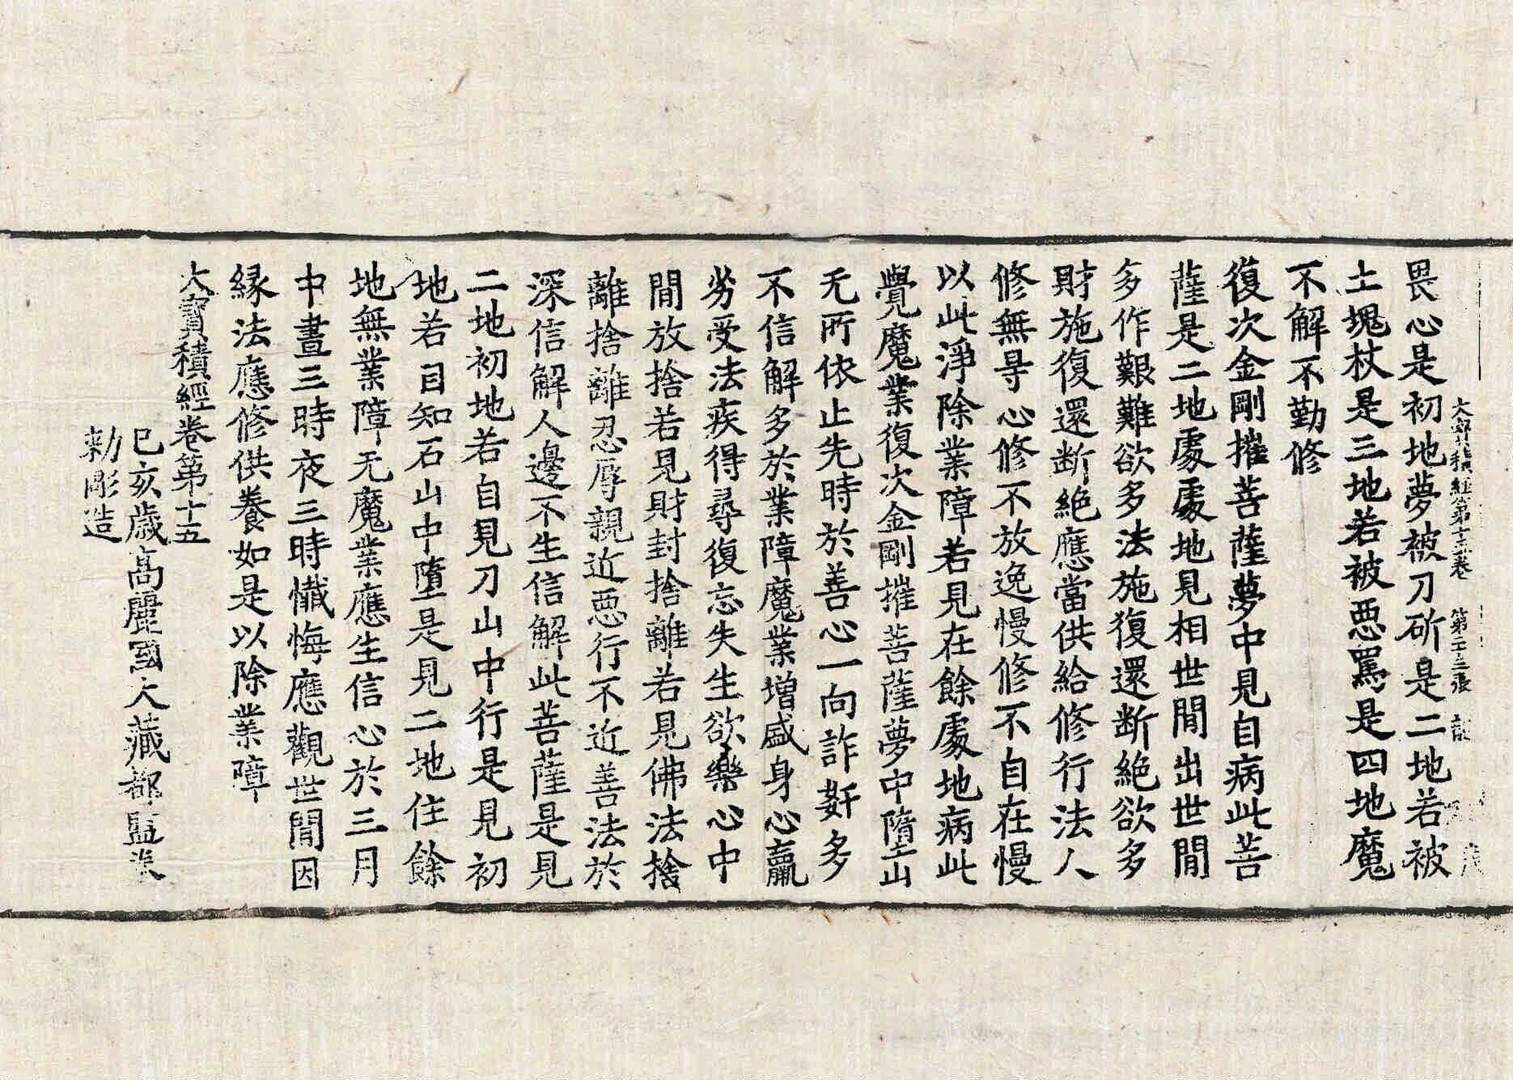 大寶積經第十五卷 第二十三張
畏心是初地夢被刀斫是二地若被
土塊杖是三地若被惡罵是四地魔
不解不勤修
復次金剛摧菩薩夢中見自病此菩
薩是二地處處地見相世間出世間
多作艱難欲多法施復還断絶欲多
財施復還断絶應當供給修行法人
修無㝵心修不放逸慢修不自在慢
以此淨除業障若見在餘處地病此
覺魔業復次金剛摧菩薩夢中墮山
无所依止先時於善心一向詐姧多
不信解多於業障魔業增盛身心羸
劣受法疾得尋復忘失生欲樂心中
間放捨若見財封捨離若見佛法捨
離捨離忍辱親近惡行不近善法於
深信解人邊不生信解此菩薩是見
二地初地若自見刀山中行是見初
地若自知石山中墮是見二地住餘
地無業障无魔業應生信心於三月
中晝三時夜三時懺悔應觀世間因
緣法應修供養如是以除業障
大寶積經卷第十五
己亥歲高麗國大藏都監奉
勅彫造